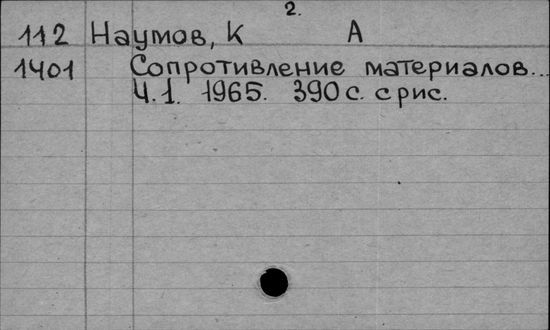 2.
112 Наумов, К А
1401 Сопротивление материалов...
Ч.1. 1965. 390 с. с рис.